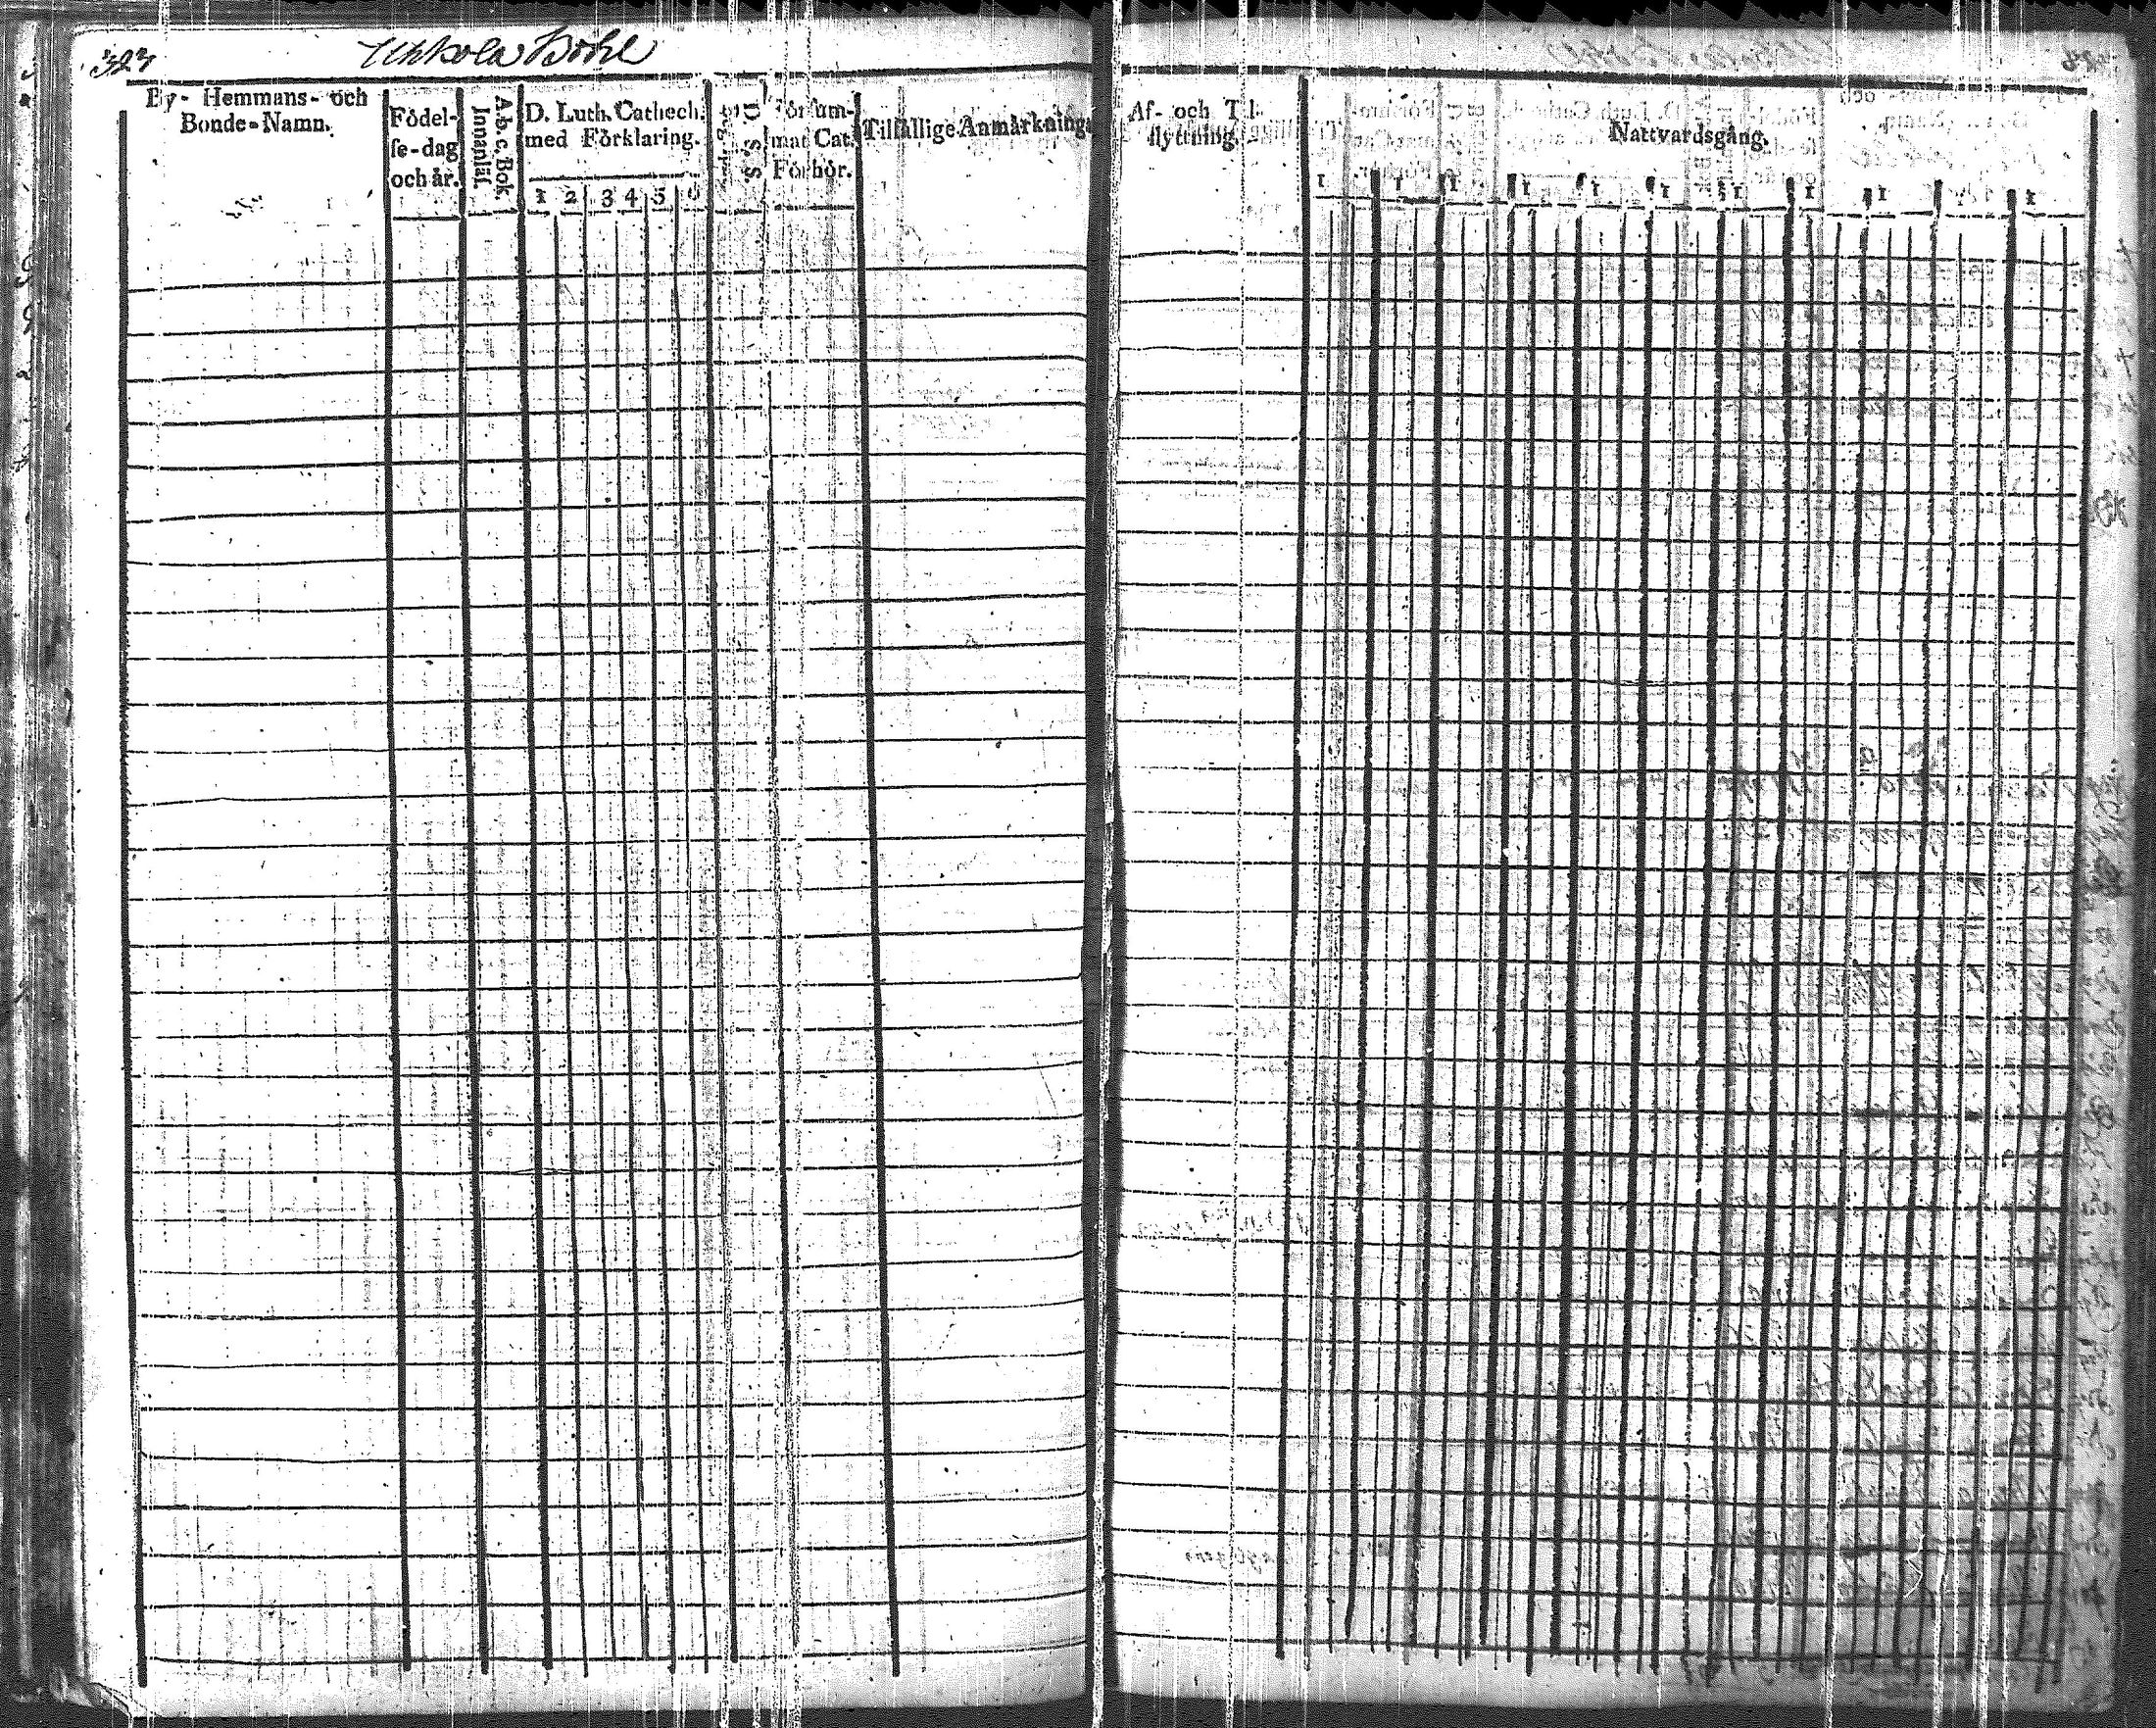 323 Uhkola Bohl
By- Hemmans- och
Bonde-Namn.
Födel-
se-dag
och år.
A.b.c. Bok.
Innanläs.
D. Luth. Cathech.
med Förklaring.
1 2 3 4 5 6
D. S. S.
Försum-
mat Cat.
Förhör.
Tilfällige Anmärkninga
Af- och Til-
flyttning.
Nattvardsgång.
1 1 1 1 1 1 1 1 1 1